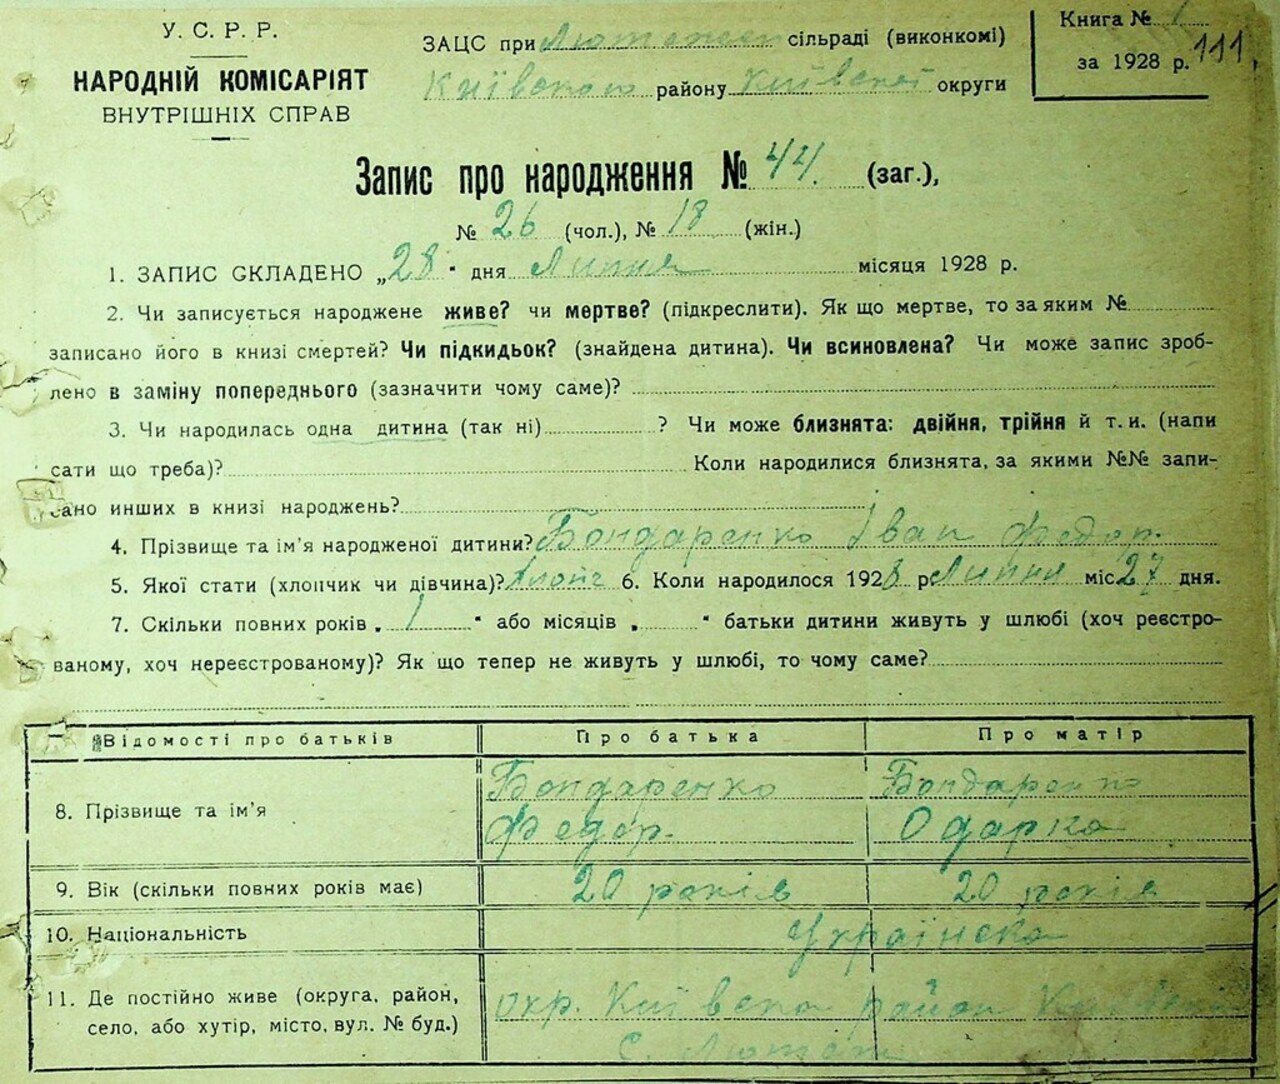 У. С. Р. Р.
НАРОДНІЙ КОМІСАРІЯТ
ВНУТРІШНІХ СПРАВ
ЗАЦС при сільраді (виконкомі)
Київского району Київскої округи
Книга № 1
за 1928 р. 111.
Запис про народження № 44. (заг.),
№ 26 (чол.), № 18 (жін.)
1. ЗАПИС СКЛАДЕНО „28" дня Липня місяця 1928 р.
2. Чи записується народжене живе? чи мертве? (підкреслити). Як що мертве, то за яким №
записано його в книзі смертей? Чи підкидьок? (знайдена дитина). Чи всиновлена? Чи може запис зроб-
лено в заміну попереднього (зазначити чому саме)?
3. Чи народилась одна дитина (так ні) ? Чи може близнята: двійня, трійня й т. и. (напи
сати що треба)? Коли народилися близнята, за якими №№ запи-
сано инших в книзі народжень?
4. Прізвище та ім'я народженої дитини? Бондаренко Іван Федор.
5. Якої стати (хлопчик чи дівчина)? Хлопч 6. Коли народилось 1928 р Липня міс 27 дня.
7. Скільки повних років „ 1 " або місяців „ " батьки дитини живуть у шлюбі (хоч реєстро-
ваному, хоч нереєстрованому)? Як що тепер не живуть у шлюбі, то чому саме?
Відомості про батьків Про батька Про матір
8. Прізвище та ім'я Бондаренко Федор. Бондаренко Одарка
9. Вік (скільки повних років має) 20 років 20 років
10. Національність Українска
11. Де постійно живе (округа, район, окр. Київска район
село, або хутір, місто, вул. № буд.) с.